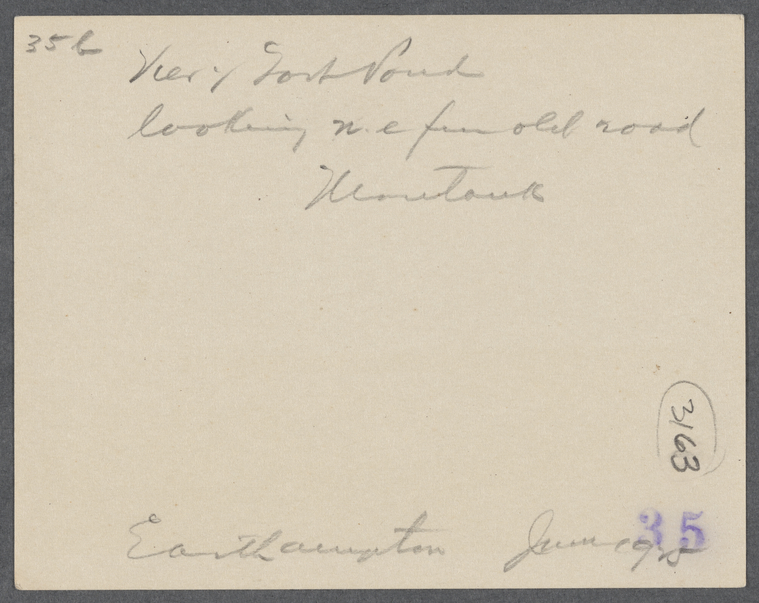 35b
View of Fort Pond
looking n.e from old road
Montauk
3163
35
Easthampton June